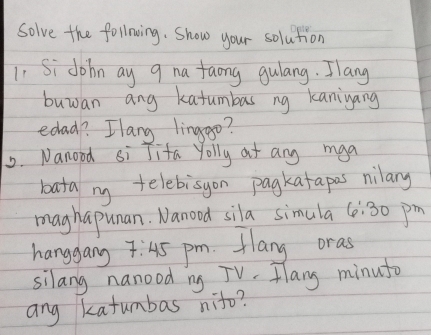 Date:
Solve the following. Show your solution
1. Si John ay 9 na taong gulang. Ilang
buwan ang katumbas ng kaniyang
edad? Ilang linggo?
2. Nanood si Tita Yolly at ang mga
bata ng telebisyon pagkatapos nilang
maghapunan. Nanood sila simula 6:30 pm
hanggang 7:45 pm. Ilang oras
silang nanood ng TV. Ilang minuto
ang katumbas nito?